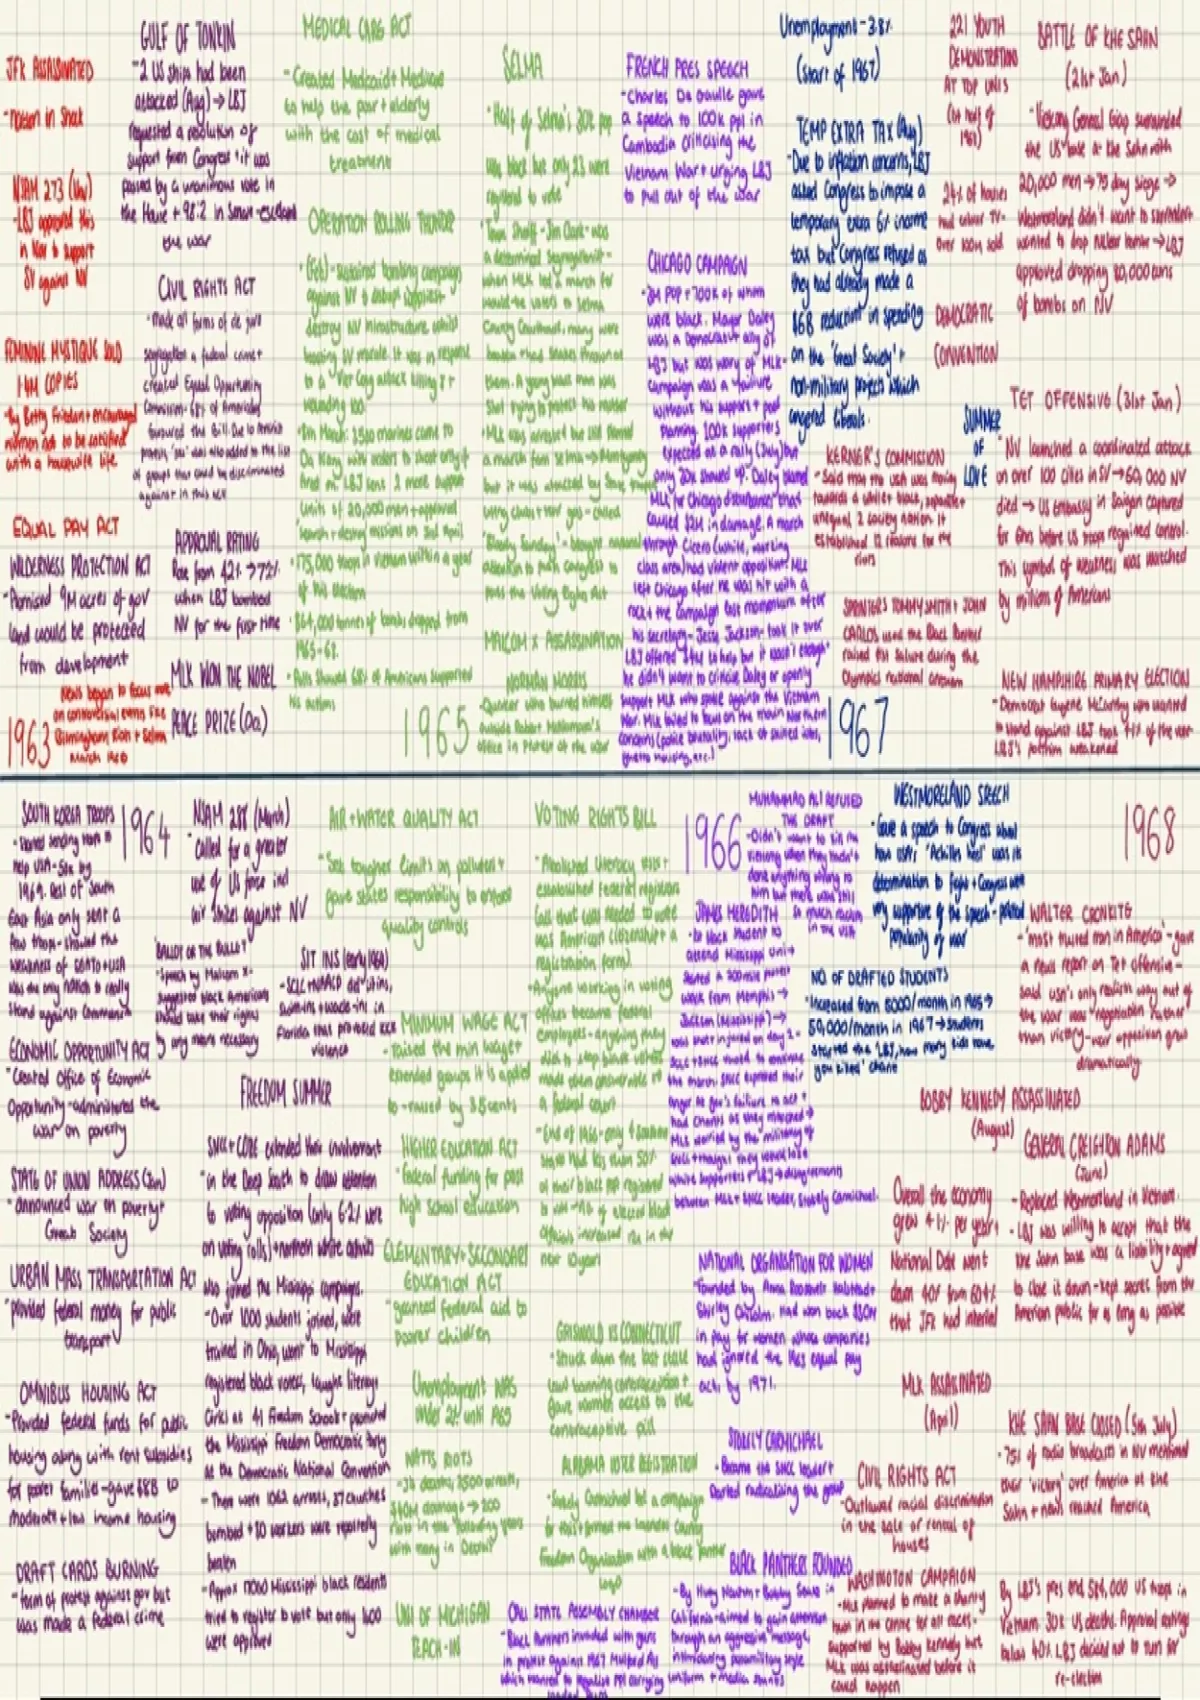 JFK ASSASINATED
NSAM 273 (Nov)
-LBJ approved this
in Nov to support
SV against NV
FEMININE MYSTIQUE SOLD
1.4M COPIES
-by Betty Friedan + encouraged
women not to be satisfied
with a housewife life
EQUAL PAY ACT
WILDERNESS PROTECTION ACT
-Promised 9M acres of gov
land would be protected
from development
News began to focus more
on controversial events like
Birmingham, Klan + Selma
March 1965
1963
GULF OF TONKIN
-2 US ships had been
attacked (Aug) → LBJ
requested a resolution of
support from Congress + it was
passed by a unanimous vote in
the House + 98:2 in Senate - escalated
the war
CIVIL RIGHTS ACT
-made all forms of de jure
segregation a federal crime +
created Equal Opportunity
Commission - 68% of Americans
favoured the Bill. Due to feminist
protests, 'sex' was also added to the list
of groups that could be discriminated
against in this act
APPROVAL RATING
Rose from 42% → 72%
when LBJ bombed
NV for the first time
MLK WON THE NOBEL
PEACE PRIZE (Dec)
MEDICAL CARE ACT
-Created Medicaid + Medicare
to help the poor + elderly
with the cost of medical
treatment
OPERATION ROLLING THUNDER
-(Feb) - sustained bombing campaign
against NV to disrupt
destroy NV infrastructure whilst
boosting SV morale. It was in response
to a Viet Cong attack killing 8 +
wounding 100.
-8th March: 3500 marines came to
Da Nang with orders to shoot only if
fired on. LBJ sent 2 more support
units of 20,000 men + approved
'search + destroy' missions on 3rd April
-175,000 troops in Vietnam within a year
of his election
-864,000 tonnes of bombs dropped from
1965-68.
-Polls showed 68% of Americans supported
his actions
1965
SELMA
-Half of Selma's 30k pop
was black but only 23 were
registered to vote
Town Sheriff - Jim Clark - was
a determined segregationist -
when MLK led a march for
would-be voters to Selma
County Courthouse, many were
beaten + had snakes thrown at
them. A young black man was
shot trying to protect his mother
-MLK was arrested but still planned
a march from Selma → Montgomery
but it was attacked by State troopers
using clubs + tear gas - called
'Bloody Sunday' - brought national
attention to push Congress to
pass the Voting Rights Act
MALCOM X ASSASSINATION
NORMAN MORRIS
-Quaker who burned himself
outside Robert McNamara's
office in protest of the war
FRENCH PRES SPEECH
-Charles De Gaulle gave
a speech to 100k ppl in
Cambodia criticising the
Vietnam War + urging LBJ
to pull out of the war
CHICAGO CAMPAIGN
-3M POP + 700k of whom
were black. Mayor Daley
was a Democrat + ally of
LBJ but was wary of MLK-
Campaign was a failure
without his support + poor
planning. 100k supporters
expected at a rally (July) but
only 30k showed up. Daley blamed
MLK for Chicago disturbances that
caused $2M in damage. A march
through Cicero (white, working
class area) had violent opposition. MLK
left Chicago after he was hit with a
rock + the campaign lost momentum after
his secretary - Jesse Jackson - took it over
LBJ offered $4M to help but it wasn't enough +
he didn't want to criticise Daley or openly
support MLK who spoke against the Vietnam
War. MLK failed to focus on the main northern
concerns (police brutality, lack of skilled jobs,
ghetto housing, etc.)
Unemployment - 3.8%
(start of 1967)
TEMP EXTRA TAX (Aug)
-Due to inflation concerns, LBJ
asked Congress to impose a
temporary extra 6% income
tax but Congress refused as
they had already made a
$6B reduction in spending
on the 'Great Society' +
non-military projects which
angered liberals.
SUMMER
OF
LOVE
KERNER'S COMMISSION
-Said that the USA was moving
towards a white + black, separate +
unequal 2 society nation. It
established 12 reasons for the
riots
SPRINTERS TOMMY SMITH + JOHN
CARLOS used the Black Panther
raised fist salute during the
Olympics national anthem
1967
221 YOUTH
DEMONSTRATIONS
AT TOP UNIS
(1st half of
1968)
24% of houses
had colour TV -
over 100m sold
DEMOCRATIC
CONVENTION
BATTLE OF KHE SAHN
(21st Jan)
-Vietcong General Giap surrounded
the US base at Khe Sahn with
20,000 men → 75 day siege →
Westmoreland didn't want to surrender +
wanted to drop nuclear bomber → LBJ
approved dropping 80,000 tons
of bombs on NV
TET OFFENSIVE (31st Jan)
-NV launched a coordinated attack
on over 100 cities in SV → 60,000 NV
died → US embassy in Saigon captured
for 6hrs before US troops regained control.
This symbol of weakness was watched
by millions of Americans
NEW HAMPSHIRE PRIMARY ELECTION
-Democrat Eugene McCarthy who wanted
to stand against LBJ took 41% of the vote -
LBJ's position weakened
SOUTH KOREA TROOPS
-Started sending troops to
help USA - 50k by
1969. Rest of South
East Asia only sent a
few troops - showed the
weakness of SEATO + USA
was the only nation to really
stand against Communism
ECONOMIC OPPORTUNITY ACT
-Created Office of Economic
Opportunity - administered the
war on poverty
STATE OF UNION ADDRESS (Jan)
-announced war on poverty +
Great Society
URBAN MASS TRANSPORTATION ACT
-provided federal money for public
transport
OMNIBUS HOUSING ACT
-Provided federal funds for public
housing along with rent subsidies
for poorer families - gave $8B to
moderate + low income housing
DRAFT CARDS BURNING
-form of protest against gov but
was made a federal crime
1964
NSAM 288 (March)
-Called for a greater
use of US force incl
air strikes against NV
'BALLOT OR THE BULLET'
-Speech by Malcom X-
suggested black Americans
should take their rights
by any means necessary
SIT INS (early 1964)
-SCLC + NAACP did sit-ins,
swim-ins + wade-ins in
Florida that provoked KKK
violence
FREEDOM SUMMER
SNCC + CORE extended their involvement
-in the Deep South to draw attention
to voting opposition (only 6.2% were
on voting rolls) + northern white activists
who joined the Mississippi campaigns.
-Over 1000 students joined, were
trained in Ohio, went to Mississippi
registered black voters, taught literacy +
civics at 41 Freedom Schools + promoted
the Mississippi Freedom Democratic Party
at the Democratic National Convention
-There were 1062 arrests, 37 churches
bombed + 80 workers were reportedly
beaten
-Approx 17000 Mississippi black residents
tried to register to vote but only 1600
were approved
AIR + WATER QUALITY ACT
-Set tougher limits on pollution +
gave states responsibility to enforce
quality controls
MINIMUM WAGE ACT
-raised the min wage +
extended groups it is applied
to - raised by 35 cents
HIGHER EDUCATION ACT
-federal funding for post
high school education
ELEMENTARY + SECONDARY
EDUCATION ACT
-granted federal aid to
poorer children
Unemployment was
under 2% until 1965
WATTS RIOTS
-34 deaths, 3500 arrests,
$40M damage → 200
riots in the following years
with many in Detroit
UNI OF MICHIGAN
TEACH-IN
VOTING RIGHTS BILL
-Abolished literacy tests +
established Federal registrars
(all that was needed to vote
was American citizenship + a
registration form).
-Anyone working in voting
offices became federal
employees - anything they
did to stop black voters
made them answerable to
a federal court
-End of 1966 - only 4 Southern
states had less than 50%
of their black pop registered
to vote - no. of elected black
officials increased six in the
next 10 years
GRISWOLD VS CONNECTICUT
-Struck down the last state
law banning contraception +
gave women access to the
contraceptive pill
ALABAMA VOTER REGISTRATION
-Stokely Carmichael led a campaign
for this + formed the Lowndes County
Freedom Organisation with a black panther
logo
CALI STATE ASSEMBLY CHAMBER
-Black Panthers invaded with guns
in protest against 1967 Mulford Act
which wanted to penalise ppl carrying
loaded guns
1966
MUHAMMAD ALI REFUSED
THE DRAFT
-Didn't want to kill the
Vietcong when they hadn't
done anything wrong to
him but there was still
so much racism
in the USA
JAMES MEREDITH
-1st black student to
attend Mississippi Uni +
started a 200mile protest
walk from Memphis →
Jackson (Mississippi) →
was shot + injured on day 2 -
SCLC + SNCC voted to continue
the march. SNCC expressed their
anger at gov's failure to act +
had chants as they marched →
MLK worried by the militancy of
SNCC + thought they would lose
white supporters + LBJ → disagreements
between MLK + SNCC leader, Stokely Carmichael.
NATIONAL ORGANISATION FOR WOMEN
-founded by Anna Roosevelt Halstead +
Shirley Chisholm. Had won back $30M
in pay for women whose companies
had ignored the 1963 equal pay
act, by 1971.
STOKELY CARMICHAEL
-Became the SNCC leader +
started radicalising the group
BLACK PANTHERS FOUNDED
-By Huey Newton + Bobby Seale in
California - aimed to gain attention
through an aggressive message,
intimidating paramilitary style
uniform + media stunts
WESTMORELAND SPEECH
-Gave a speech to Congress about
how USA's 'Achilles heel' was its
determination to fight + Congress were
very supportive of the speech - political
popularity of war
NO. OF DRAFTED STUDENTS
-Increased from 5000/month in 1965 →
50,000/month in 1967 → students
started the 'LBJ, how many kids have
you killed' chant
BOBBY KENNEDY ASSASSINATED
(August)
Overall the economy
grew 4.1% per year +
National Debt went
down 40% from 60.4%
that JFK had inherited
MLK ASSASINATED
(April)
CIVIL RIGHTS ACT
-Outlawed racial discrimination
in the sale or rental of
houses
WASHINGTON CAMPAIGN
-MLK planned to make a shanty
town in the centre for all races -
supported by Bobby Kennedy but
MLK was assassinated before it
could happen
1968
WALTER CRONKITE
-'most trusted man in America' - gave
a news report on Tet offensive -
said USA's only realistic way out of
the war was 'negotiation' rather
than victory - war opposition grew
dramatically
GENERAL CREIGHTON ADAMS
(June)
-Replaced Westmoreland in Vietnam.
-LBJ was willing to accept that the
Khe Sahn base was a liability + agreed
to close it down - kept secret from the
American public for as long as possible
KHE SAHN BASE CLOSED (5th July)
-75% of radio broadcasts in NV mentioned
their 'victory' over America at Khe
Sahn + news reached America
By LBJ's pres end 536,000 US troops in
Vietnam 30k US deaths. Approval ratings
below 40% LBJ decided not to run for
re-election